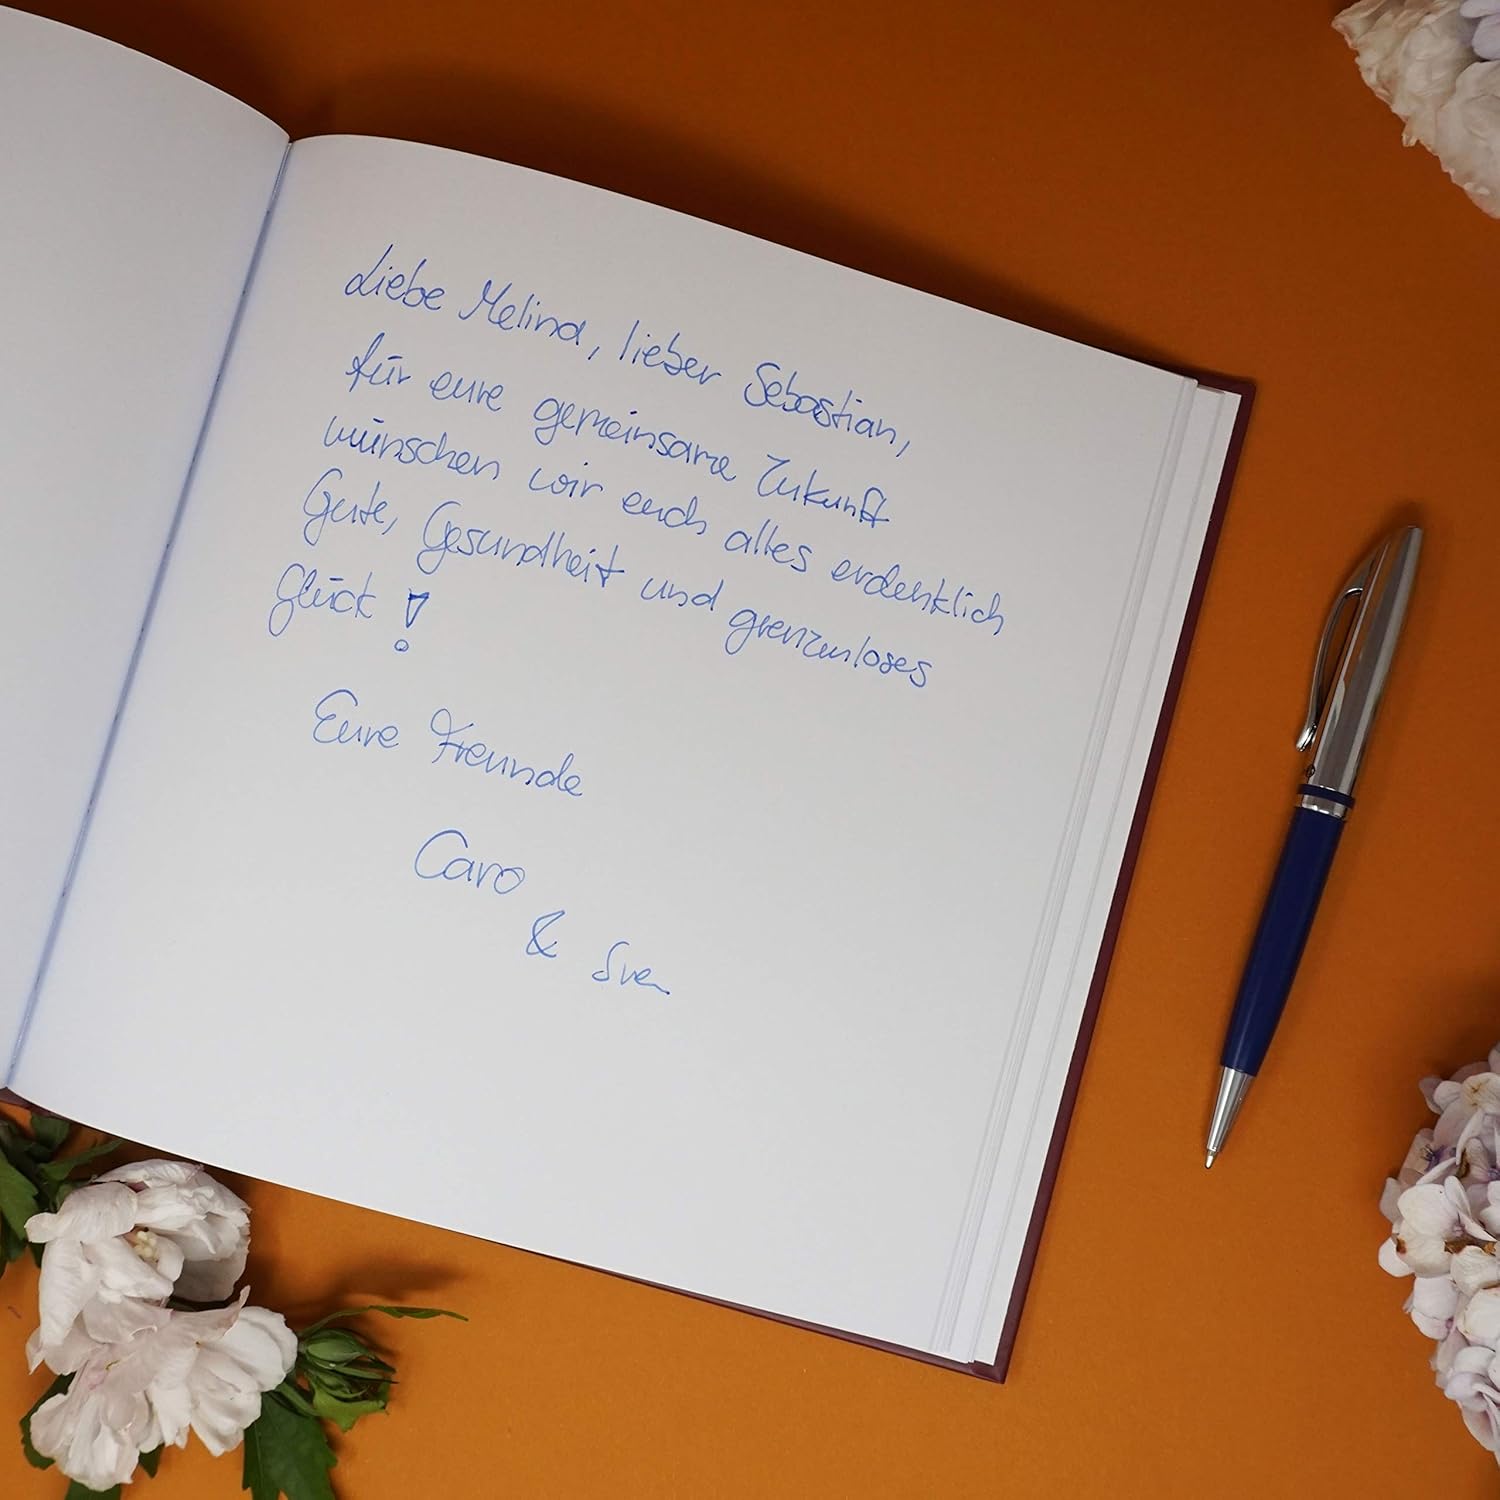 Liebe Melina, lieber Sebastian,
für eure gemeinsame Zukunft
wünschen wir euch alles erdenklich
Gute, Gesundheit und grenzenloses
Glück!
Eure Freunde
Caro
& Sven